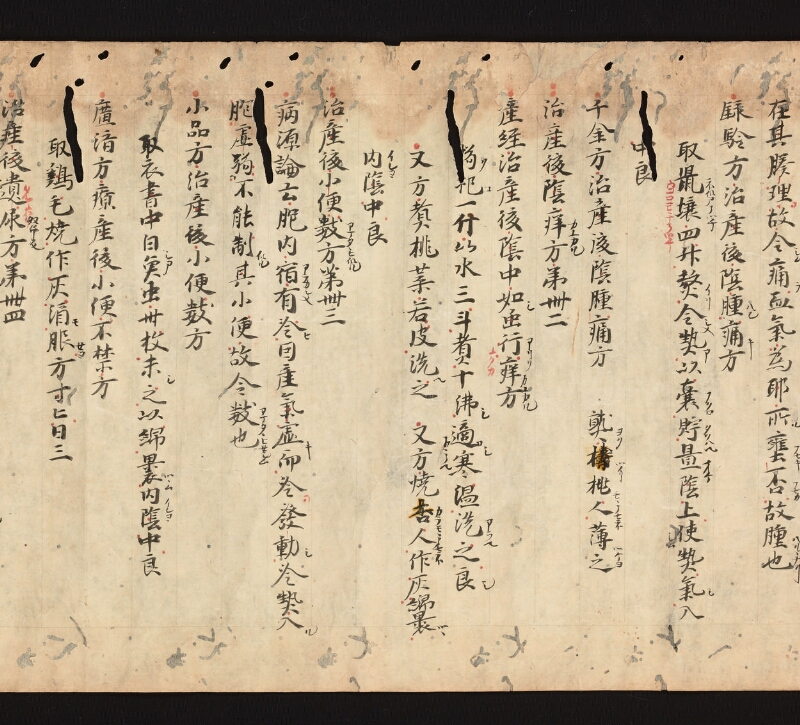 在其腠理故令痛血氣爲耶所壅否故腫也
録驗方治産後陰腫痛方
取鼠壤四升熬令熱以嚢貯置陰上使熱氣入
中良
千金方治産後陰腫痛方 熟 桃人薄之
治産後陰痒方第卅二
産経治産後陰中如虫行痒方
枸杞一斤以水三斗煮十沸適寒温洗之良
又方煮桃葉若皮洗之 又方焼杏人作灰綿裹
内陰中良
治産後小便數方第卅三
病源論云胞内宿有冷因産氣虚而冷發動冷熱入
胞虚弱不能制其小便故令數也
小品方治産後小便數方
取衣書中白魚虫卅枚末之以綿裹内陰中良
廣濟方療産後小便不禁方
取鷄毛焼作灰酒服方寸匕日三
治産後遺尿方第卅四